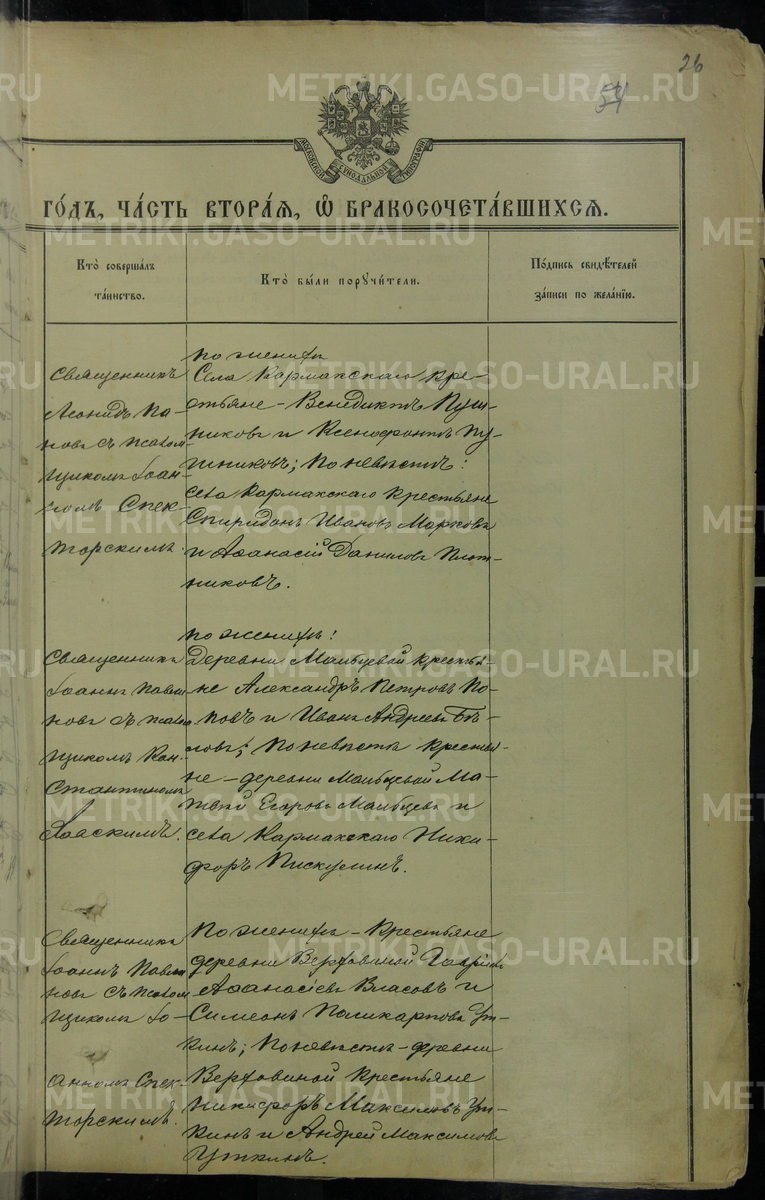 26
54
METRIKI.GASO-URAL.RU
МОСКОВСКОЙ СѴНОДАЛЬНОЙ ТИПОГРАФІИ
ГОДЪ, ЧАСТЬ ВТОРАЯ, Ѡ БРАКОСОЧЕТАВШИХСЯ.
Кто совершалъ
таинство.
Кто были поручители.
Подпись свидѣтелей
записи по желанію.
Священникъ
Леонидъ Па-
новъ съ псалом-
щикомъ Іоан-
номъ Спек-
торскимъ.
По женихѣ
Села Кармакскаго кре-
стьяне – Венедиктъ Пуш-
никовъ и Ксенофонтъ Пу-
шниковъ; По невѣстѣ:
села Кармакскаго крестьяне
Спиридонъ Ивановъ Марковъ
и Аѳанасій Даниловъ Плот-
никовъ.
Священникъ
Іоаннъ Павли-
новъ съ псалом-
щикомъ Кон-
стантиномъ
По женихѣ:
Деревни Мальцевой крестья-
не Александръ Петровъ По-
повъ и Иванъ Андреевъ Бѣ-
ловъ; По невѣстѣ крестья-
не – деревни Мальцевой Ма-
твѣй Егоровъ Мальцевъ и
села Кармакскаго Ники-
форъ Пискулинъ.
Священникъ
Іоаннъ Павли-
новъ съ псалом-
щикомъ Іо-
анномъ Спек-
торскимъ.
По женихѣ – крестьяне
деревни Верховиной Гавріилъ
Аѳанасіевъ Власовъ и
Симеонъ Поликарповъ Ут-
кинъ; По невѣстѣ – деревни
Верховиной крестьяне
Никифоръ Максимовъ Ут-
кинъ и Андрей Максимовъ
Уткинъ.